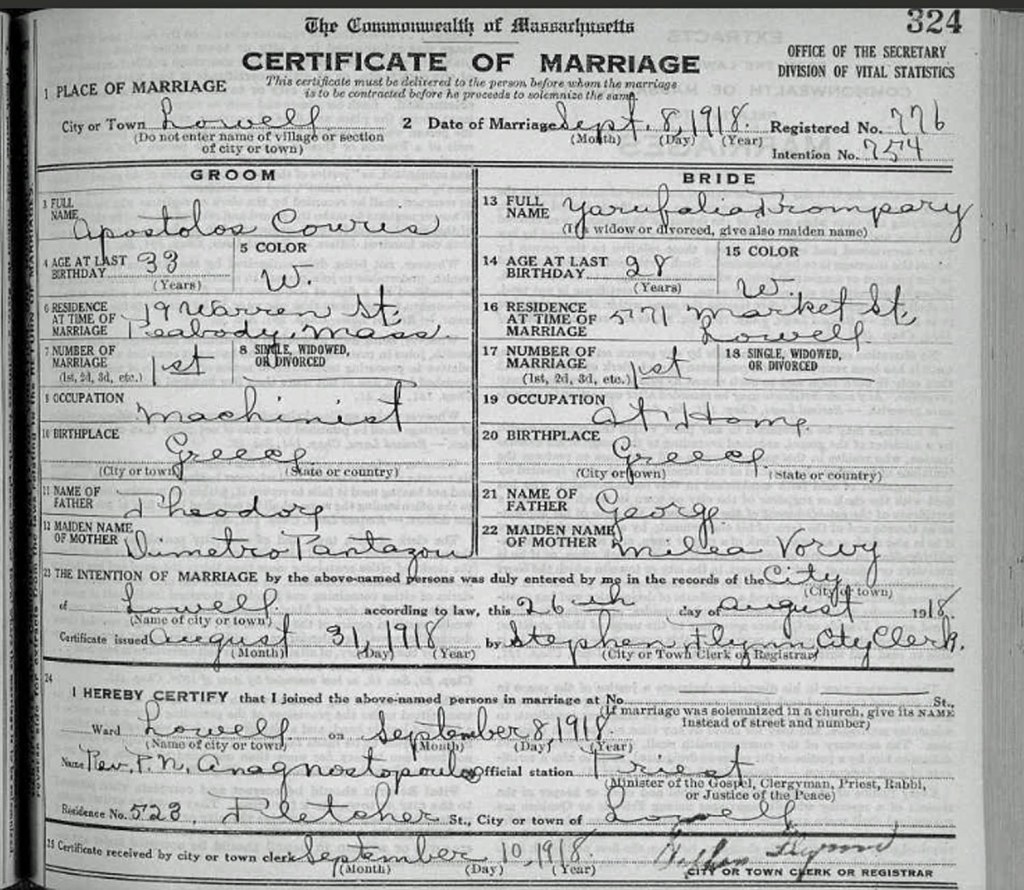 324
The Commonwealth of Massachusetts
CERTIFICATE OF MARRIAGE
OFFICE OF THE SECRETARY
DIVISION OF VITAL STATISTICS
This certificate must be delivered to the person before whom the marriage
is to be contracted before he proceeds to solemnize the same
1 PLACE OF MARRIAGE
City or Town Lowell 2 Date of Marriage Sept. 8, 1918. Registered No. 776
(Do not enter name of village or section of city or town) (Month) (Day) (Year) Intention No. 754
GROOM
3 FULL NAME Apostolos Couris
4 AGE AT LAST BIRTHDAY 33 (Years) 5 COLOR W.
6 RESIDENCE AT TIME OF MARRIAGE 19 Warren St. Peabody, Mass.
7 NUMBER OF MARRIAGE (1st, 2d, 3d, etc.) 1st 8 SINGLE, WIDOWED, OR DIVORCED
9 OCCUPATION Machinist
10 BIRTHPLACE Greece
(City or town) (State or country)
11 NAME OF FATHER Theodore
12 MAIDEN NAME OF MOTHER Dimetro Pantazou
BRIDE
13 FULL NAME Yarufalia
(If a widow or divorced, give also maiden name)
14 AGE AT LAST BIRTHDAY 28 (Years) 15 COLOR W.
16 RESIDENCE AT TIME OF MARRIAGE 571 Market St. Lowell
17 NUMBER OF MARRIAGE (1st, 2d, 3d, etc.) 1st 18 SINGLE, WIDOWED, OR DIVORCED
19 OCCUPATION At Home
20 BIRTHPLACE Greece
(City or town) (State or country)
21 NAME OF FATHER George
22 MAIDEN NAME OF MOTHER Milea Vorvy
23 THE INTENTION OF MARRIAGE by the above-named persons was duly entered by me in the records of the City
(City or town)
of Lowell according to law, this 26th day of August 1918.
(Name of city or town)
Certificate issued August 31, 1918 by Stephen Flynn, City Clerk.
(Month) (Day) (Year) (City or Town Clerk or Registrar)
24
I HEREBY CERTIFY that I joined the above-named persons in marriage at No. St.,
(If marriage was solemnized in a church, give its NAME
Instead of street and number)
Ward Lowell on September 8, 1918.
(Name of city or town) (Month) (Day) (Year)
Name Rev. P. N. Anagnostopoulos Official station Priest
(Minister of the Gospel, Clergyman, Priest, Rabbi,
or Justice of the Peace)
Residence No. 523 Fletcher St., City or town of Lowell
25 Certificate received by city or town clerk September 10, 1918. Stephen Flynn
(Month) (Day) (Year) CITY OR TOWN CLERK OR REGISTRAR